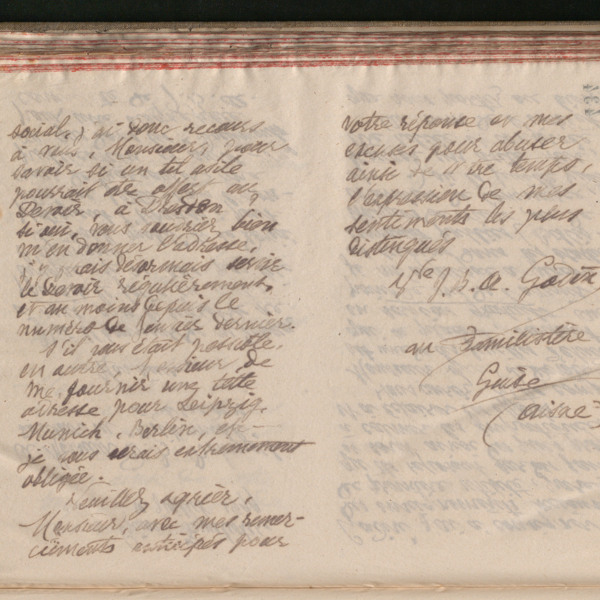 social. J'ai donc recours
à vous, Monsieur, pour
savoir si un tel asile
pourrait être offert au
Devoir, à Dresden ?
Si oui, vous voudriez bien
m'en donner l'adresse,
j'y ferais désormais servir
le Devoir régulièrement,
et au moins depuis le
numéro de janvier dernier.
S'il vous était possible,
en outre, Monsieur, de
me fournir une telle
adresse pour Leipzig,
Munich, Berlin, etc—
je vous serais extrêmement
obligée.
Veuillez agréer,
Monsieur, avec mes remer-
ciements anticipés pour
votre réponse et mes
excuses pour abuser
ainsi de votre temps,
l'expression de mes
sentiments les plus
distingués
Vve J. B. A. Godin
au Familistère
Guise
(Aisne)